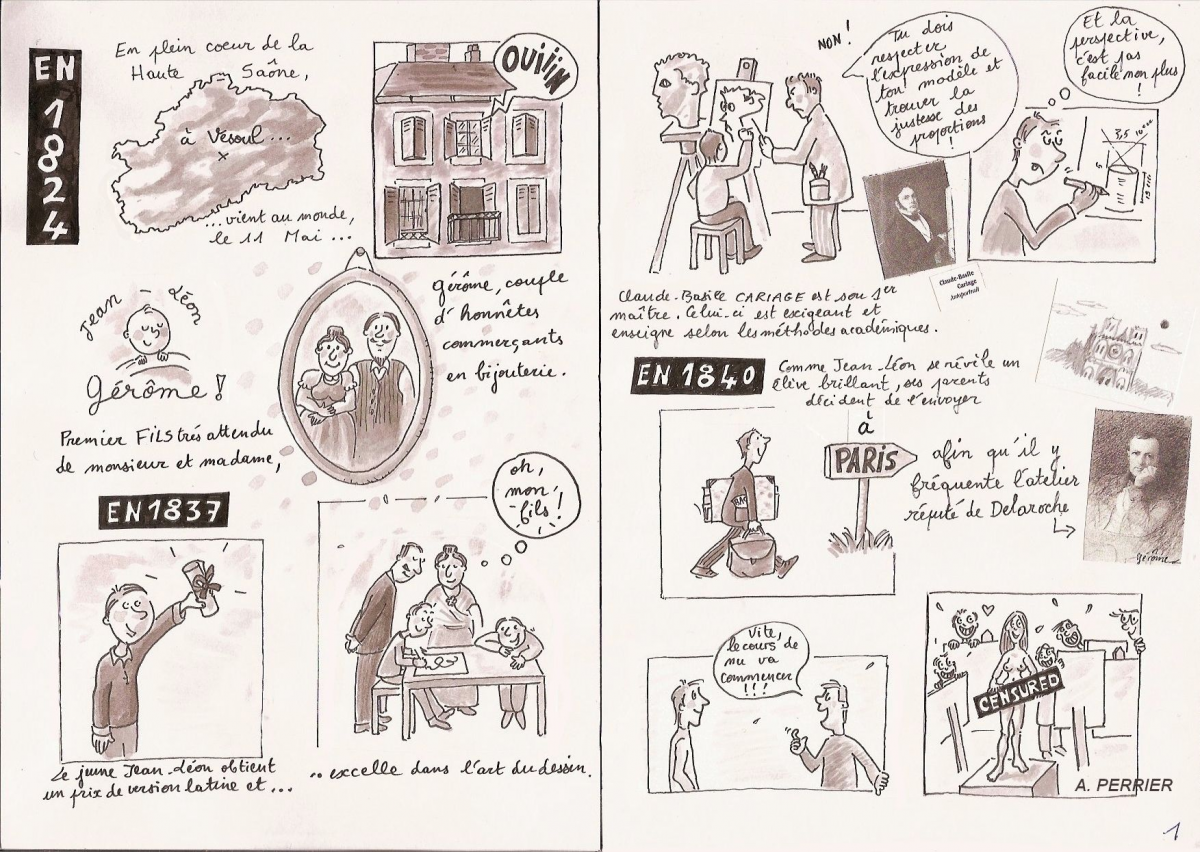 EN
1824
En plein coeur de la
Haute Saône,
à Vesoul...
...vient au monde,
le 11 Mai...
OUiiiN
Jean-Léon
Gérôme!
Premier FILS trés attendu
de monsieur et madame,
gérôme, couple
d'honnêtes
commerçants
en bijouterie.
EN 1837
Le jeune Jean-Léon obtient
un prix de version latine et...
oh,
mon
fils!
.. excelle dans l'art du dessin.
NON!
Tu dois
respecter
l'expression de
ton modèle et
trouver la
justesse des
proportions
!
Et la
perspective,
c'est pas
facile non plus
!
3,5
Claude-Basile
Cariage
Autoportrait
Claude-Basile CARIAGE est son 1er
maître. Celui-ci est exigeant et
enseigne selon les méthodes académiques.
EN 1840
Comme Jean-Léon se révèle un
élève brillant, ses parents
décident de l'envoyer
à
PARIS
afin qu'il y
fréquente l'atelier
réputé de Delaroche
gérôme
Vite,
le cours de
nu va
commencer
!!!
CENSURED
A. PERRIER
1